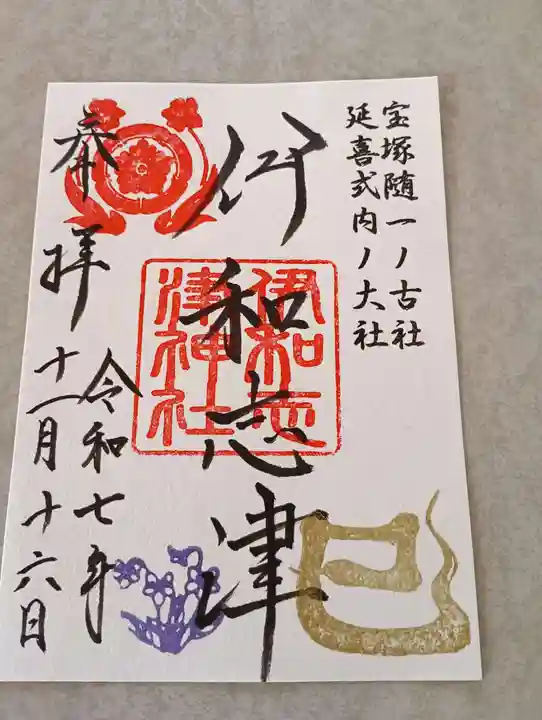 宝塚随一ノ古社
延喜式内ノ大社
伊和志津
伊和志
津神社
奉拝
令和七年
十一月十六日
巳